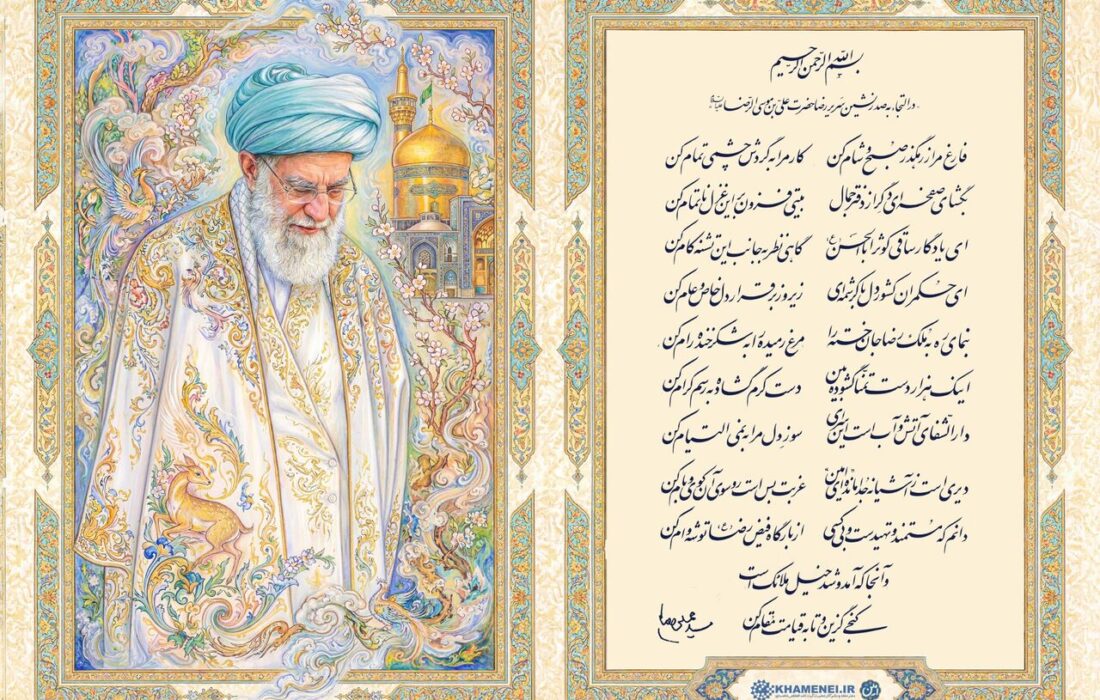 بسم الله الرحمن الرحیم
در التجا به صدرنشین سریر رضا حضرت علی بن موسی الرضا
فارغ مرا ز رهگذر صبح و شام کن کار مرا به گردش چشمی تمام کن
بگشای صفحه‌ای دگر از دفتر جمال بیتی فزون بر این غزل ناتمام کن
ای یادگار ساقی کوثر اباالحسن (ع) گاهی نظر به جانب این تشنه کام کن
ای حکمران کشور دل با کرشمه‌ای زیر و زبر قرار دل خاص و عام کن
بنمای ره به ملک رضا جان خسته را مرغ رمیده را به شکرخنده رام کن
اینک هزار دست تمنا گشوده بین دست کرم گشاده به رسم کرام کن
دارالشفای آتش و آب است این سرای سوز دل مرا به نمی التیام کن
دیری است ز آشیانه جدا مانده‌ای امین غربت بس است رو سوی آن کوی و بام کن
دانم که مستمند و تهیدست و بی‌کسی از بارگاه فیض رضا (ع) توشه وام کن
وآنجا که آمد و شد خیل ملائک است
کنجی گزین و تا به قیامت مقام کن
KHAMENEI.IR